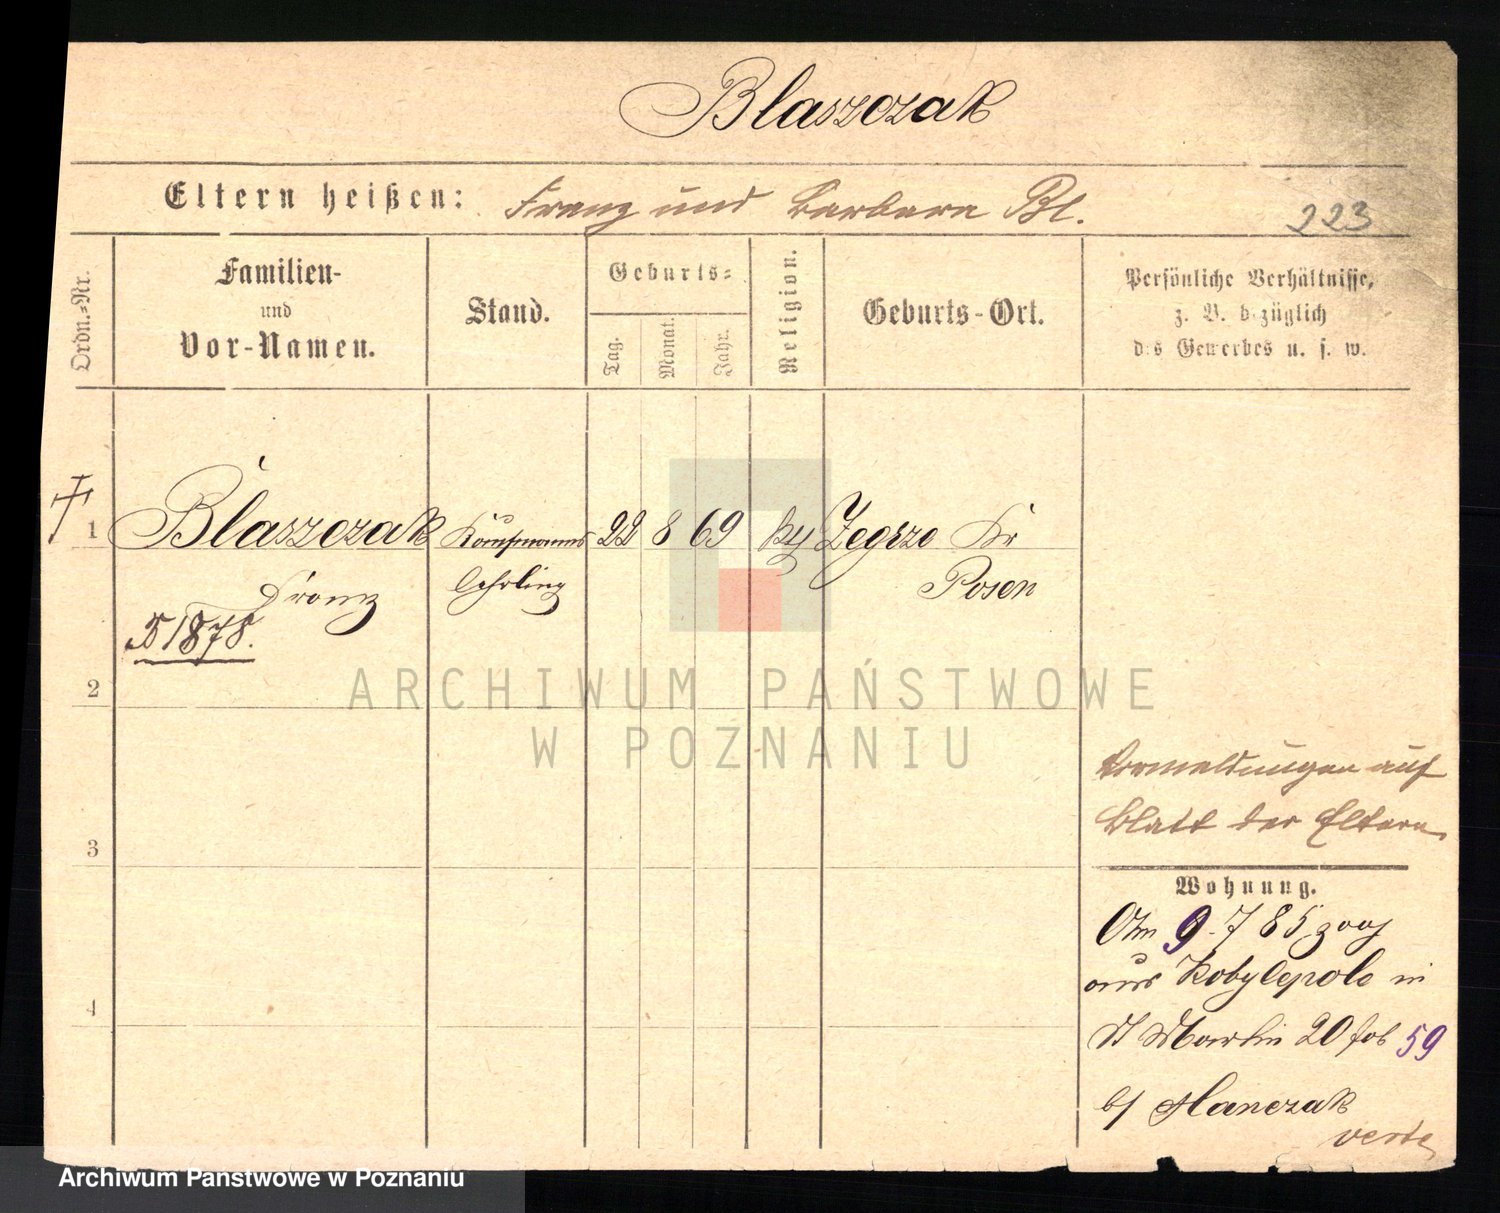 Blaszczak
Eltern heißen: Franz und Barbara Bl.
223
Ordn.-Nr.
Familien-
und
Vor-Namen.
Stand.
Geburts-
Tag.
Monat.
Jahr.
Religion.
Geburts-Ort.
Persönliche Verhältnisse,
z. B. bezüglich
des Gewerbes u. s. w.
1 Blaszczak Kaufmanns 22 8 69 Zegrze Kr
Franz Lehrling Posen
1878.
2
3
4
ARCHIWUM PAŃSTWOWE
W POZNANIU
Vormeldungen auf
Blatt der Eltern
Wohnung.
Am 9.7 85 zog
aus Kobylepole in
St Martin 20 59
b/ Hanczak
verte
Archiwum Państwowe w Poznaniu